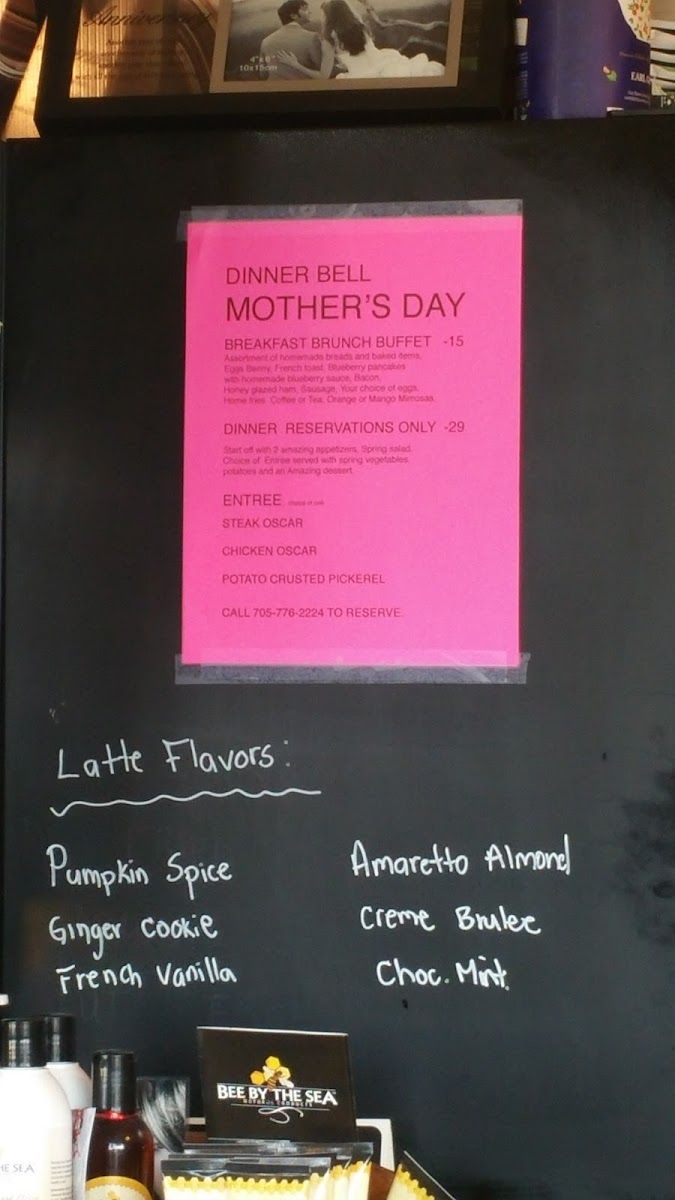 Anniversary
4"x6"
10x15cm
EARL
DINNER BELL
MOTHER'S DAY
BREAKFAST BRUNCH BUFFET -15
Assortment of homemade breads and baked items,
Eggs Benny, French toast, Blueberry pancakes
with homemade blueberry sauce, Bacon,
Honey glazed ham, Sausage, Your choice of eggs,
Home fries. Coffee or Tea, Orange or Mango Mimosas.
DINNER RESERVATIONS ONLY -29
Start off with 2 amazing appetizers, Spring salad,
Choice of Entree served with spring vegetables,
potatoes and an Amazing dessert
ENTREE choice of one
STEAK OSCAR
CHICKEN OSCAR
POTATO CRUSTED PICKEREL
CALL 705-776-2224 TO RESERVE.
Latte Flavors:
Pumpkin Spice Amaretto Almond
Ginger Cookie Creme Brulee
French Vanilla Choc. Mint.
BEE BY THE SEA
HE SEA